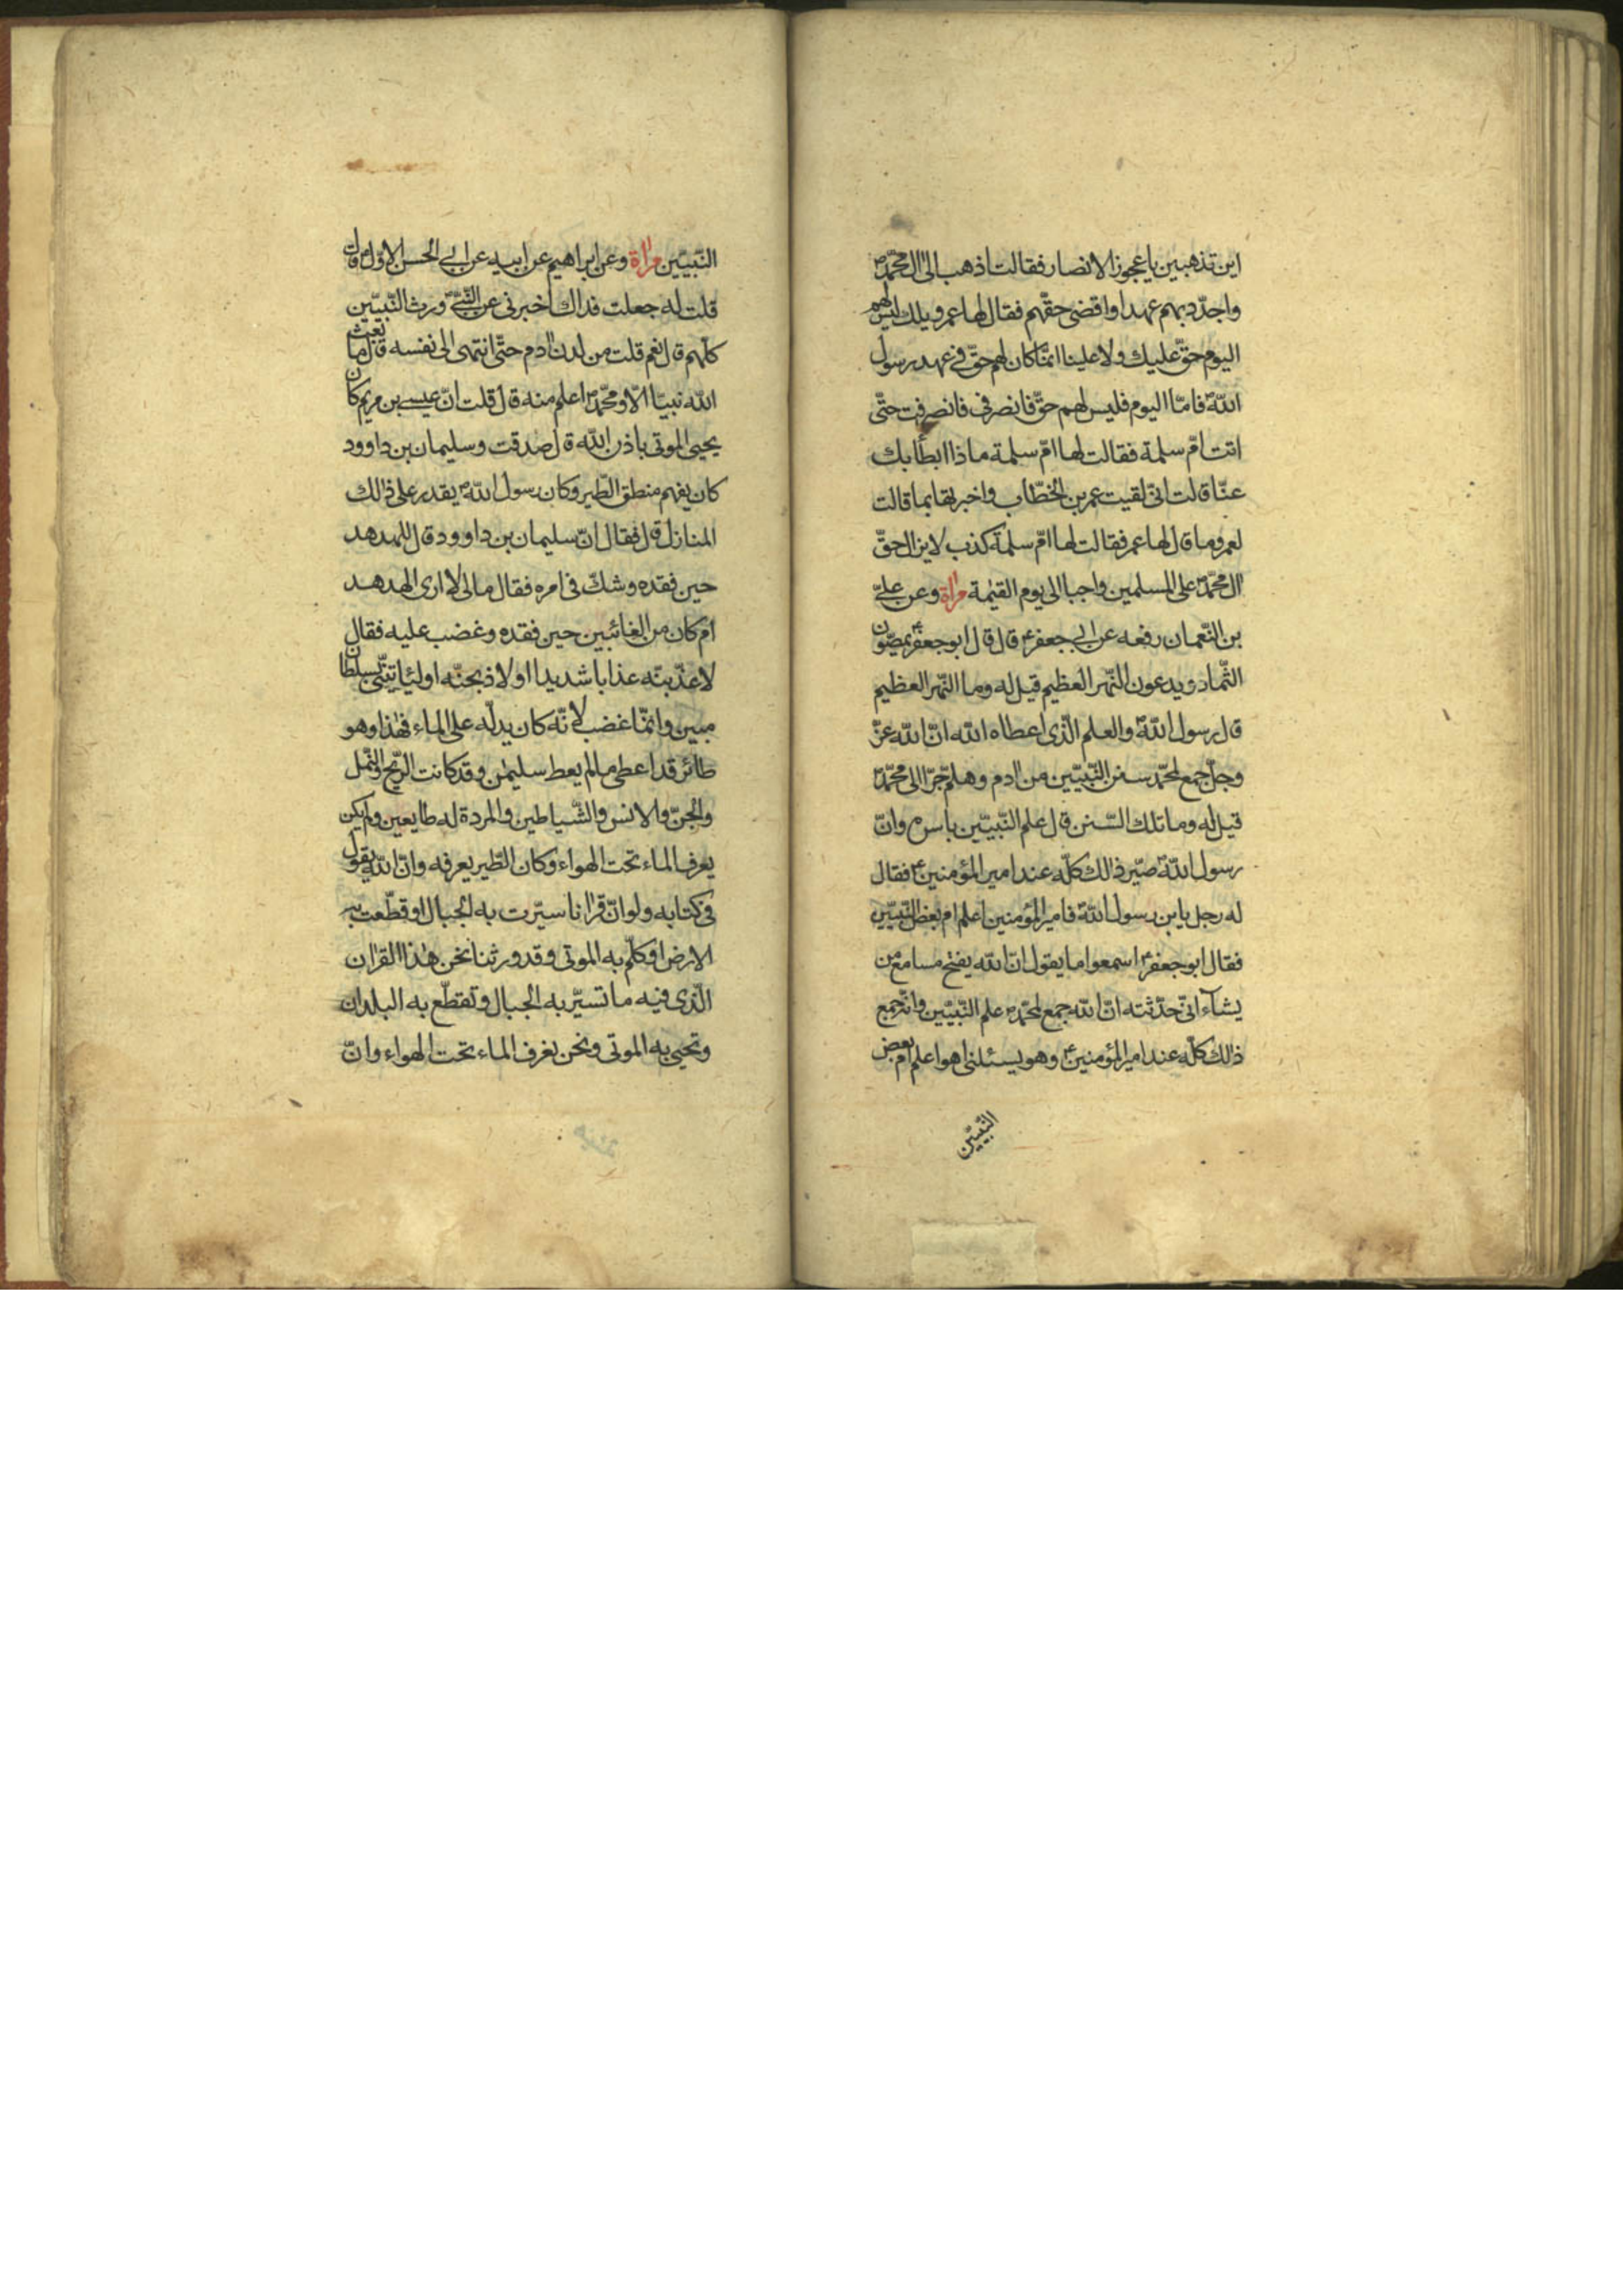 اين تذهبين يا عجوز الانصار فقالت اذهب الى ال محمّد ص
واجدّد بهم عهدا واقضى حقّهم فقال لها عمر ويلك ليس لهم
اليوم حقّ عليك ولا علينا انّما كان لهم حقّ فى عهد رسول
اللّه ص فامّا اليوم فليس لهم حقّ فانصرفى فانصرفت حتّى
اتت امّ سلمة فقالت لها امّ سلمة ماذا ابطأ بك
عنّا قالت انّى لقيت عمر بن الخطّاب واخبرتها بما قالت
لعمر وما قال لها عمر فقالت لها امّ سلمة كذب لا يزال حقّ
ال محمّد ص على المسلمين واجبا الى يوم القيمة مرآة وعن علىّ
بن النّعمان رفعه عن ابى جعفر ع قال قال ابو جعفر ع يمصّون
الثّماد ويدعون النّهر العظيم قيل له وما النّهر العظيم
قال رسول اللّه ص والعلم الّذى اعطاه اللّه انّ اللّه عزّ
وجلّ جمع لمحمّد سنن النّبيّين من ادم وهلمّ جرّا الى محمّد ص
قيل له وما تلك السّنن قال علم النّبيّين باسره وانّ
رسول اللّه ص صيّر ذالك كلّه عند امير المؤمنين ع فقال
له رجل يا بن رسول اللّه ص فامير المؤمنين اعلم ام بعض النّبيّين
فقال ابو جعفر ع اسمعوا ما يقول انّ اللّه يفتح مسامع من
يشآء انّى حدّثته انّ اللّه جمع لمحمّد ص علم النّبيّين وانّه جمع
ذالك كلّه عند امير المؤمنين ع وهو يسئلنى اهو اعلم ام بعض
النّبيّين
النّبيّين مرآة وعن ابراهيم عن ابيه عن ابى الحسن الاوّل ع قال
قلت له جعلت فداك اخبرنى عن النّبىّ ص ورث النّبيّين
كلّهم قال نعم قلت من لدن ادم حتّى انتهى الى نفسه قال ما بعث
اللّه نبيّا الّا ومحمّد ص اعلم منه قال قلت انّ عيسى بن مريم كان
يحيى الموتى باذن اللّه قال صدقت وسليمان بن داوود
كان يفهم منطق الطّير وكان رسول اللّه ص يقدر على ذالك
المنازل قال فقال انّ سليمان بن داوود قال للهدهد
حين فقده وشكّ فى امره فقال مالى لا ارى الهدهد
ام كان من الغائبين حين فقده وغضب عليه فقال
لاعذّبنّه عذابا شديدا او لاذبحنّه او لياتينّى بسلطان
مبين وانّما غضب لانّه كان يدلّه على الماء فهذا وهو
طائر قد اعطى ما لم يعط سليمن وقد كانت الرّيح والنّمل
والجنّ والانس والشّياطين والمردة له طايعين ولم يكن
يعرف الماء تحت الهواء وكان الطّير يعرفه وانّ اللّه يقول
فى كتابه ولو انّ قرانا سيّرت به الجبال او قطّعت به
الارض او كلّم به الموتى وقد ورثنا نحن هذا القران
الّذى فيه ما تسيّر به الجبال وتقطّع به البلدان
وتحيى به الموتى ونحن نعرف الماء تحت الهواء وانّ